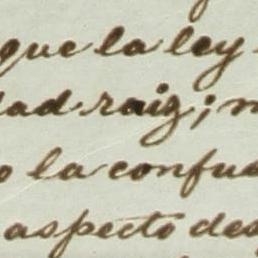 que la ley
dad raiz; n
o la confu
aspecto des